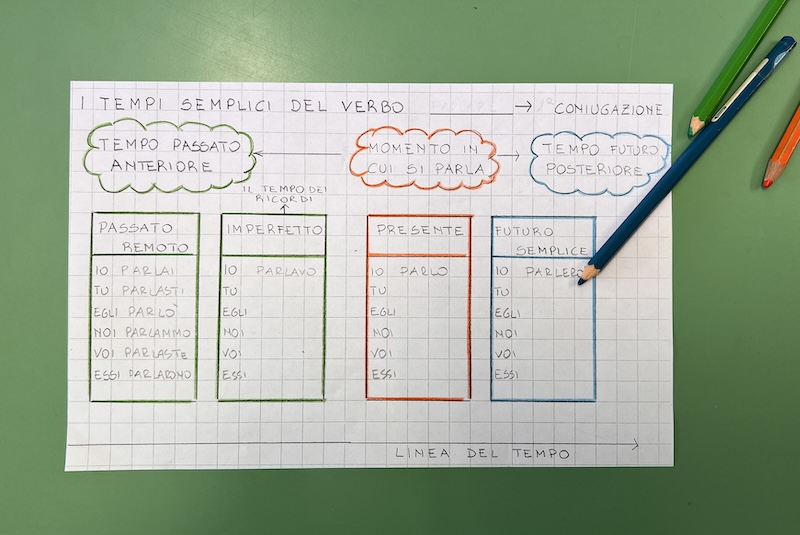 I TEMPI SEMPLICI DEL VERBO → CONIUGAZIONE
TEMPO PASSATO
ANTERIORE
MOMENTO IN
CUI SI PARLA
TEMPO FUTURO
POSTERIORE
IL TEMPO DEI
RICORDI
PASSATO
REMOTO
IO PARLAI
TU PARLASTI
EGLI PARLÒ
NOI PARLAMMO
VOI PARLASTE
ESSI PARLARONO
IMPERFETTO
IO PARLAVO
TU
EGLI
NOI
VOI
ESSI
PRESENTE
IO PARLO
TU
EGLI
NOI
VOI
ESSI
FUTURO
SEMPLICE
IO PARLERÒ
TU
EGLI
NOI
VOI
ESSI
LINEA DEL TEMPO